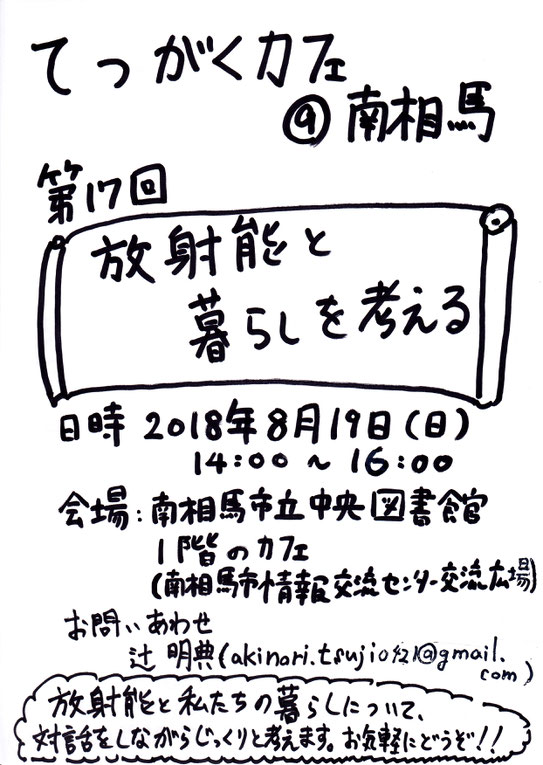 てつがくカフェ
@南相馬
第17回
放射能と
暮らしを考える
日時 2018年8月19日(日)
14:00～16:00
会場:南相馬市立中央図書館
1階のカフェ
(南相馬市情報交流センター交流広場)
お問いあわせ
辻 明典(akinori.tsuji0421@gmail.
com)
放射能と私たちの暮らしについて、
対話をしながらじっくりと考えます。お気軽にどうぞ!!